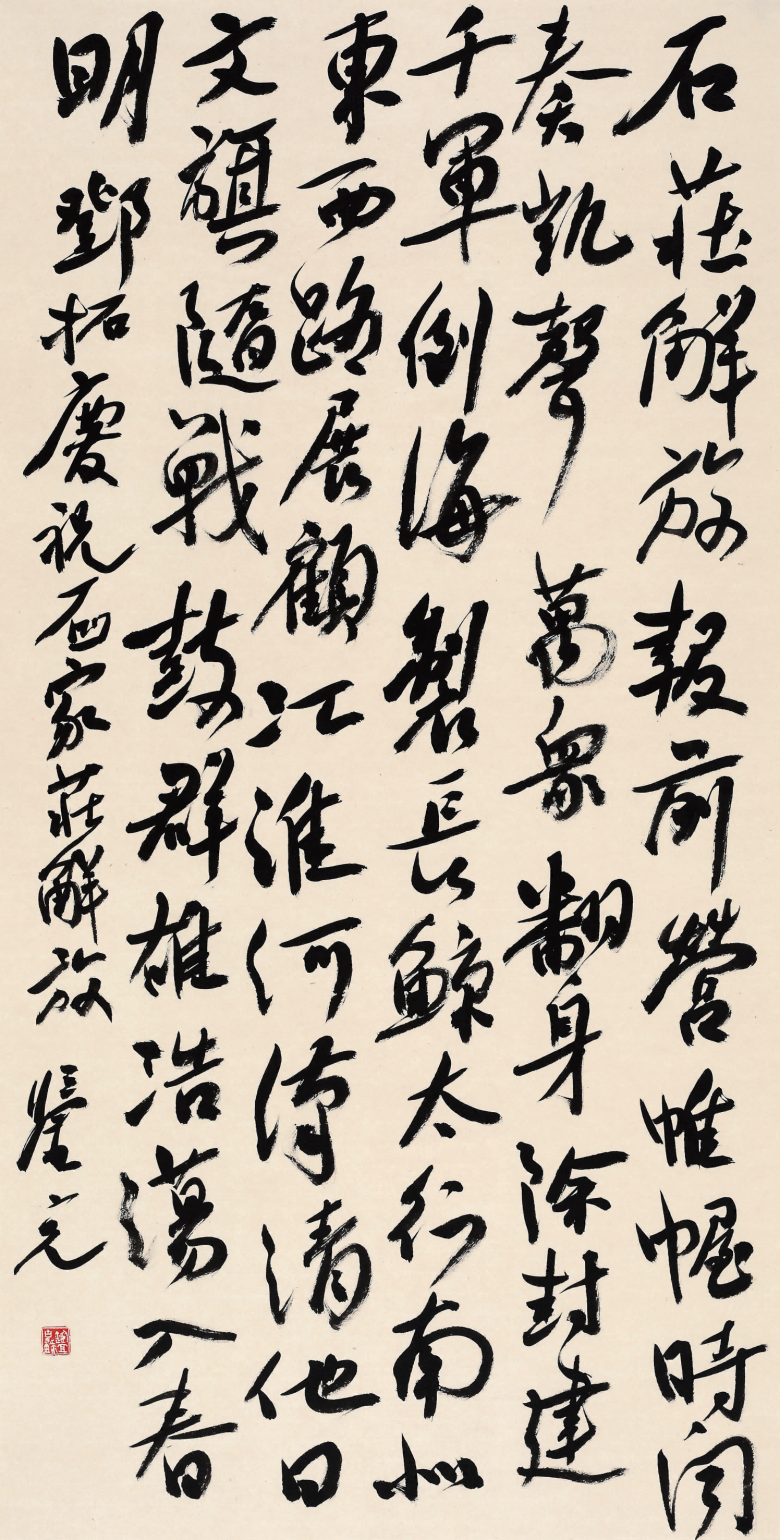 石莊解放報前營帷幄時聞
奏凱聲萬衆翻身除封建
千軍倒海製長鲸太行南北
東西路展顧江淮河漢清他日
文旗隨戰鼓群雄浩蕩入春
明 鄧拓慶祝石家莊解放 鑒元